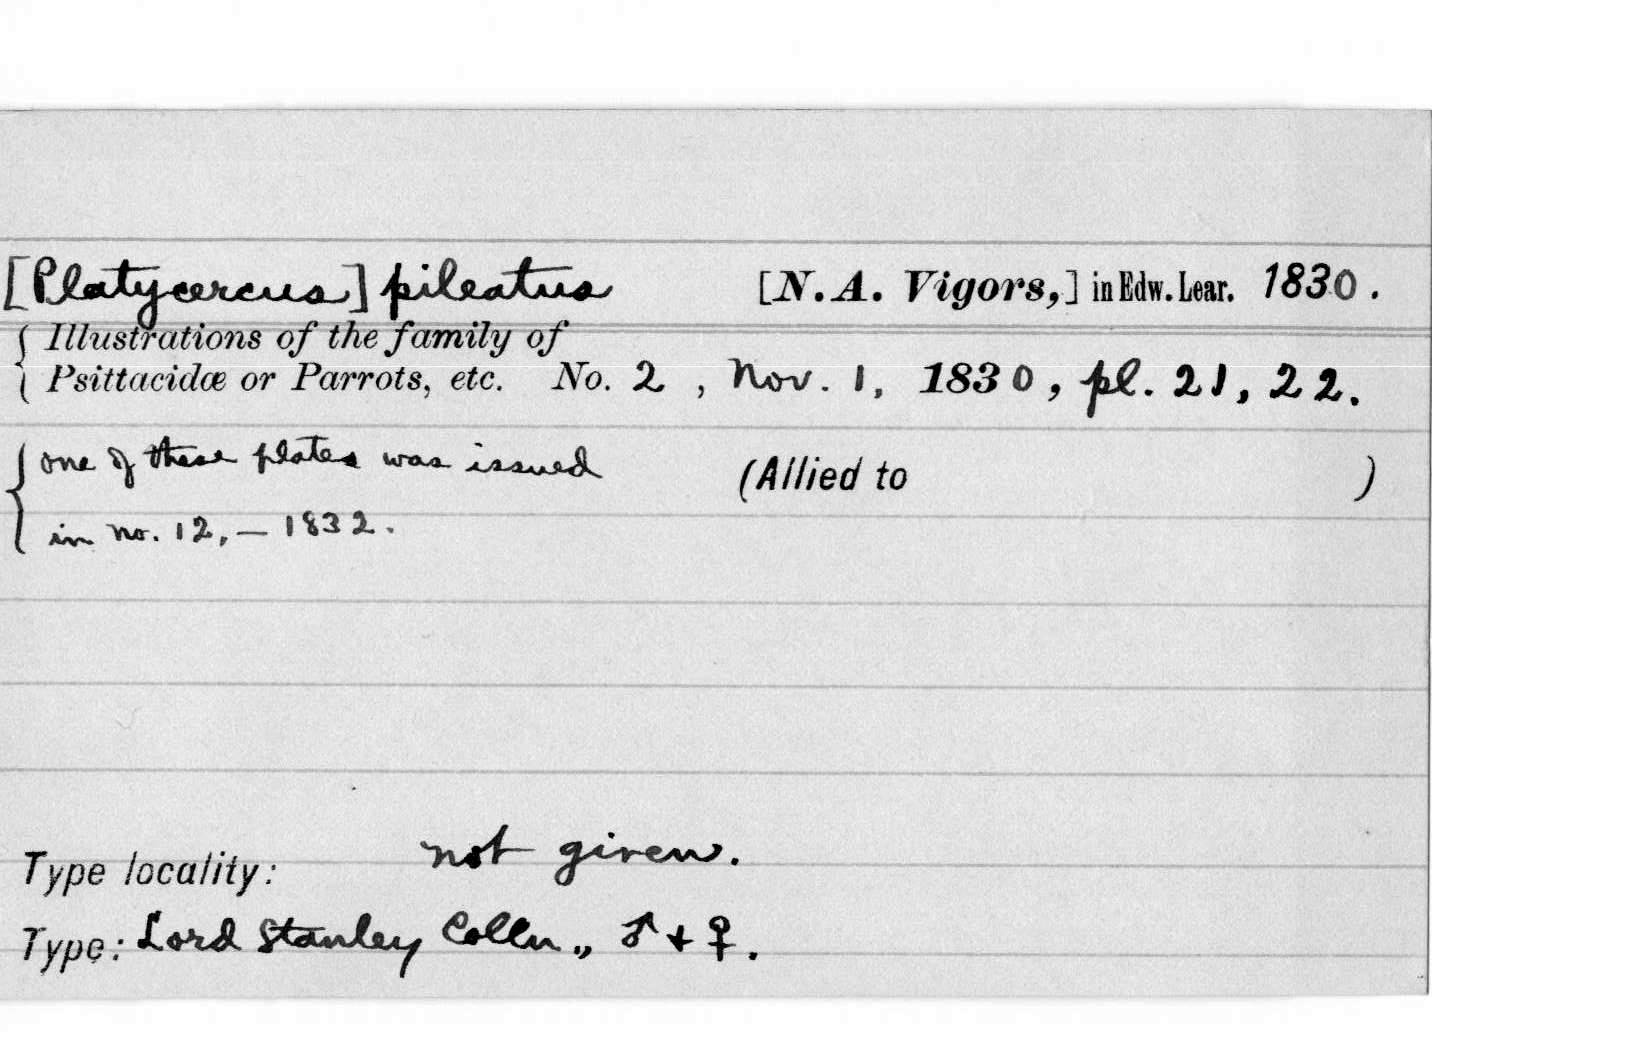 [Platycercus] pileatus [N. A. Vigors,] in Edw. Lear. 1830.
{ Illustrations of the family of
{ Psittacidæ or Parrots, etc. No. 2, Nov. 1, 1830, pl. 21, 22.
{ one of these plates was issued (Allied to )
in no. 12, — 1832.
Type locality: not given.
Type: Lord Stanley Colln., ♂ + ♀.